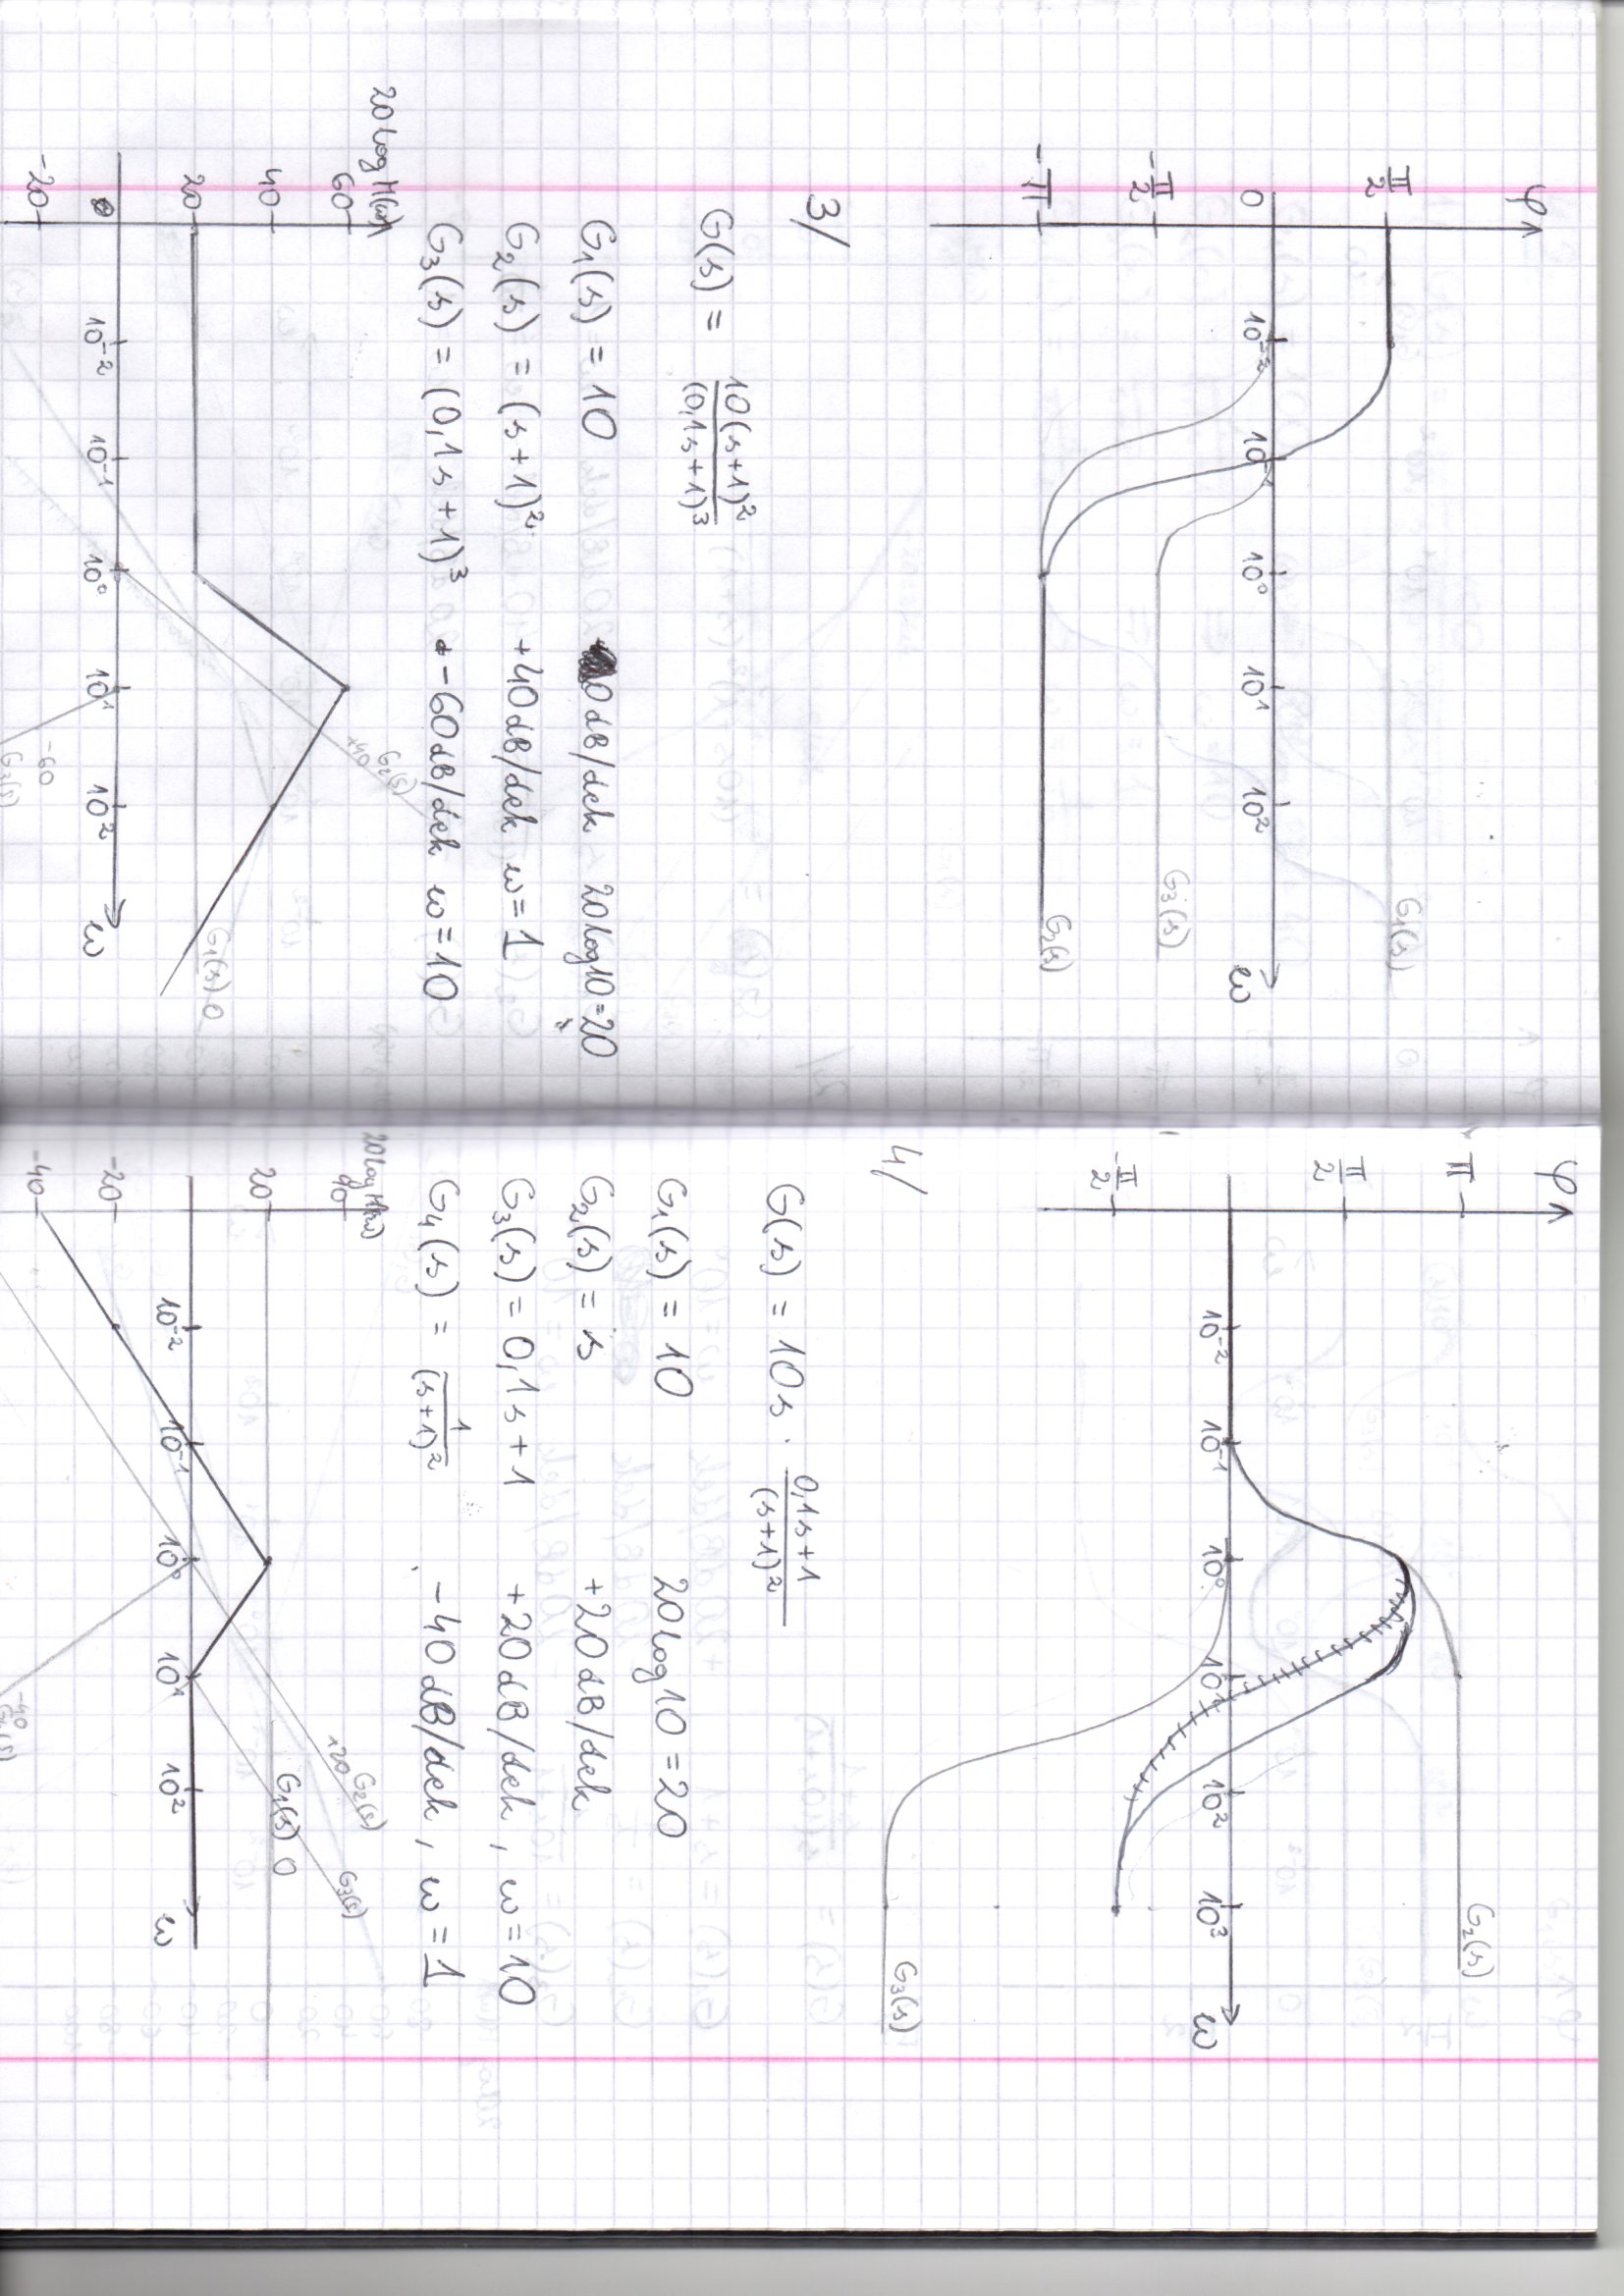 φ
π/2
G₁(s)
0 10⁻² 10⁻¹ 10⁰ 10¹ 10² ω
-π/2 G₃(s)
-π G₂(s)
3/
G(s) = 10(s+1)²/(0,1s+1)³
G₁(s) = 10 0 dB/dek 20log10=20
G₂(s) = (s+1)² +40dB/dek ω=1
G₃(s) = (0,1s+1)³ -60dB/dek ω=10
20 log M(ω)
G₂(s)
+40
60
40
20 G₁(s) 0
10⁻² 10⁻¹ 10⁰ 10¹ 10² ω
-20 -60
G₃(s)
φ
π G₂(s)
π/2
10⁻² 10⁻¹ 10⁰ 10¹ 10² 10³ ω
-π/2
4/
G₃(s)
G(s) = 10s · (0,1s+1)/(s+1)²
G₁(s) = 10 20log10=20
G₂(s) = s +20dB/dek
G₃(s) = 0,1s+1 +20dB/dek, ω=10
G₄(s) = 1/(s+1)² -40dB/dek, ω=1
20 log M(ω)
+20 G₂(s)
40 G₃(s)
20 G₁(s) 0
10⁻² 10⁻¹ 10⁰ 10¹ 10² ω
-20
-40 -40